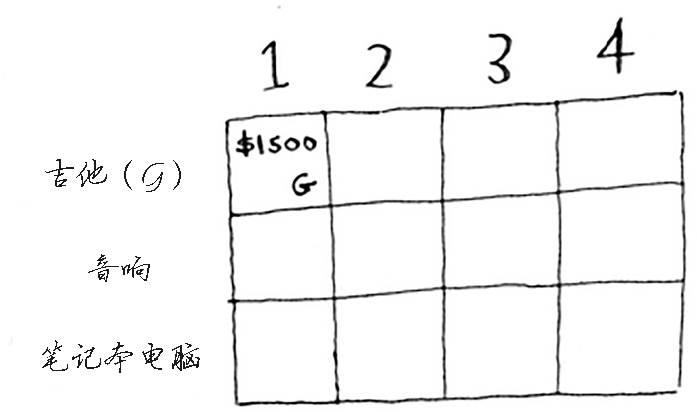 1 2 3 4
吉他(G)
$1500
G
音响
笔记本电脑